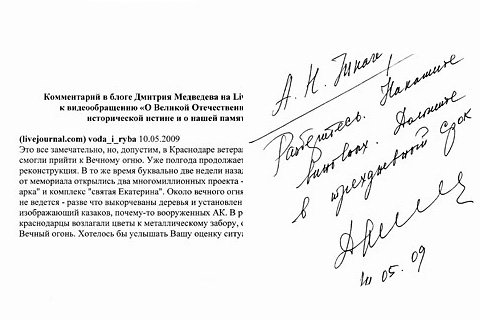 Комментарий в блоге Дмитрия Медведева на Liv
к видеообращению «О Великой Отечественн
исторической истине и о нашей памят
(livejournal.com) voda_i_ryba 10.05.2009
Это все замечательно, но, допустим, в Краснодаре ветера
смогли прийти к Вечному огню. Уже полгода продолжает
реконструкция. В то же время буквально две недели наза
от мемориала открылись два многомиллионных проекта -
арка" и комплекс "святая Екатерина". Около вечного огня
не ведется - разве что выкорчеваны деревья и установлен
изображающий казаков, почему-то вооруженных АК. В р
краснодарцы возлагали цветы к металлическому забору, с
Вечный огонь. Хотелось бы услышать Вашу оценку ситуа
А. Н. Ткач
Разберитесь. Накажите
виновных. Доложите
в трехдневный срок
10.05.09